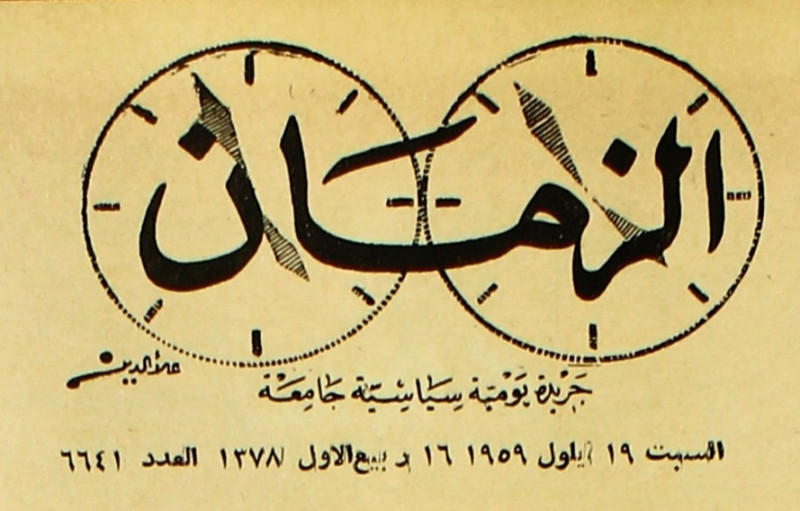 الزمان
علاء الدين
جَريدة يَومية سِيَاسِيّة جَامِعَة
السبت ١٩ ايلول ١٩٥٩ ١٦ ربيع الاول ١٣٧٨ العدد ٦٦٤١